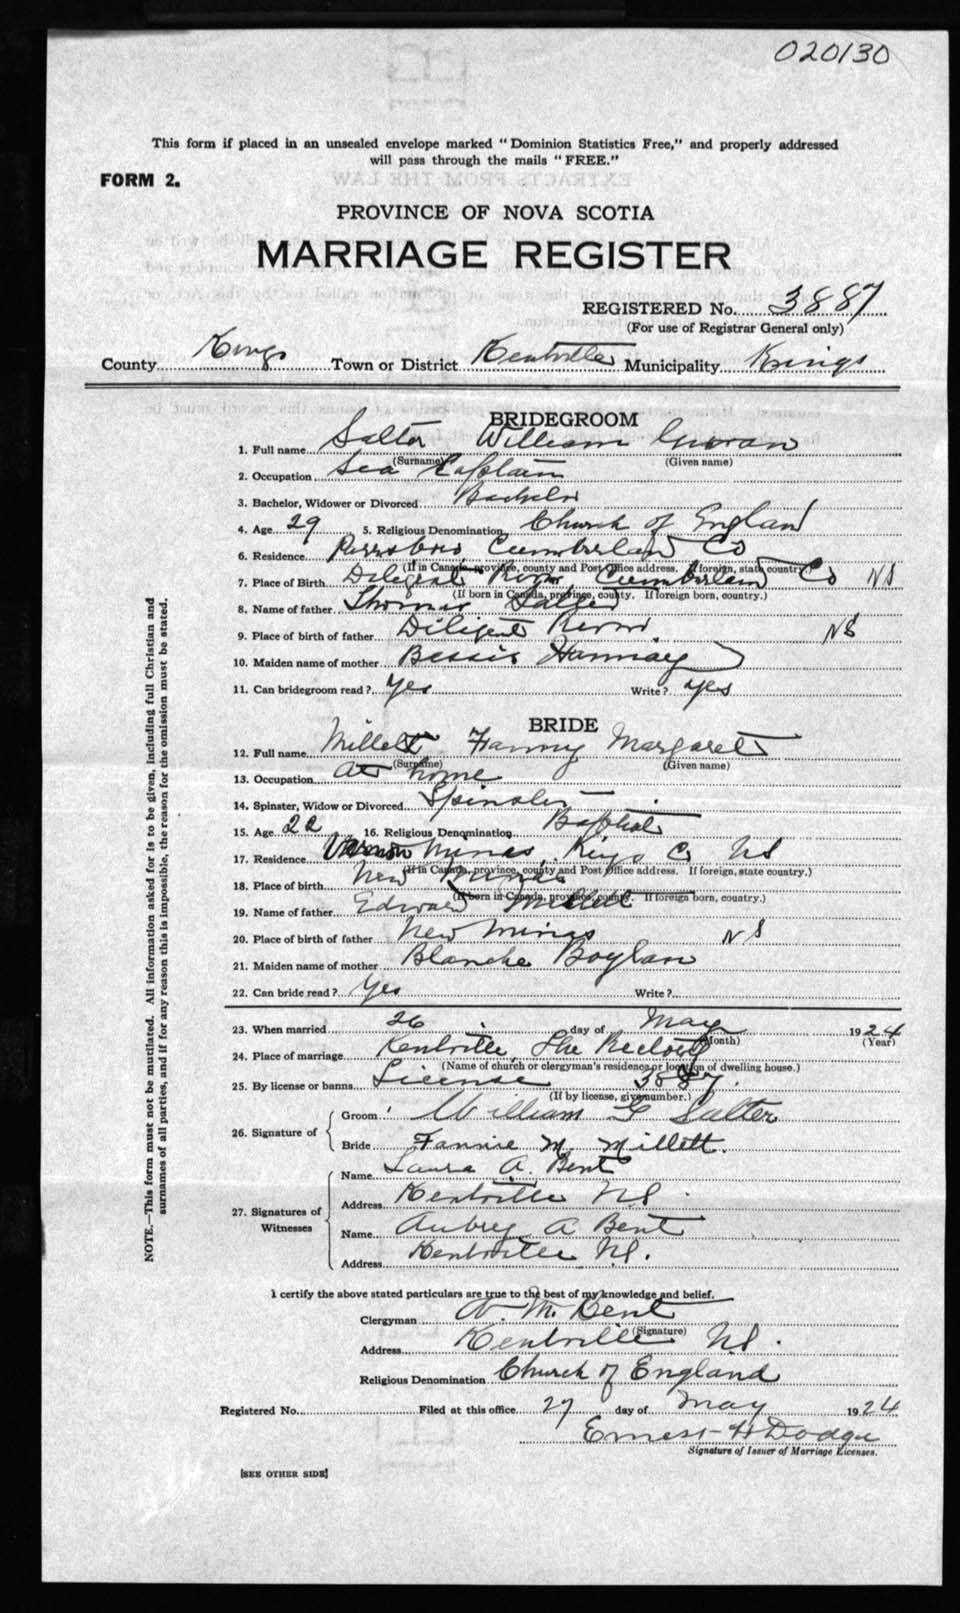 020130
This form if placed in an unsealed envelope marked "Dominion Statistics Free," and properly addressed
will pass through the mails "FREE."
FORM 2.
PROVINCE OF NOVA SCOTIA
MARRIAGE REGISTER
REGISTERED No. 3887
(For use of Registrar General only)
County Kings Town or District Kentville Municipality Kings
BRIDEGROOM
1. Full name Salter William
(Surname) (Given name)
2. Occupation Sea Captain
3. Bachelor, Widower or Divorced Bachelor
4. Age 29 5. Religious Denomination Church of England
6. Residence Parrsboro Cumberland Co
(If in Canada, province, county and Post Office address. If foreign, state country.)
7. Place of Birth Diligent River Cumberland Co NS
(If born in Canada, province, county. If foreign born, country.)
8. Name of father Thomas Salter
9. Place of birth of father Diligent River NS
10. Maiden name of mother Bessie Hannay
11. Can bridegroom read? Yes Write? Yes
BRIDE
12. Full name Millett Fanny Margaret
(Surname) (Given name)
13. Occupation At home
14. Spinster, Widow or Divorced Spinster
15. Age 22 16. Religious Denomination Baptist
17. Residence Minas, Kings Co NS
(If in Canada, province, county and Post Office address. If foreign, state country.)
18. Place of birth New Minas
(If born in Canada, province, county. If foreign born, country.)
19. Name of father Edward Millett
20. Place of birth of father New Minas NS
21. Maiden name of mother Blanche Boylan
22. Can bride read? Yes Write?
23. When married 26 day of May 1924
(Month) (Year)
24. Place of marriage Kentville, The Rectory
(Name of church or clergyman's residence or location of dwelling house.)
25. By license or banns License 3887.
(If by license, give number.)
26. Signature of
Groom William G Salter
Bride Fannie M. Millett.
27. Signatures of Witnesses
Name Laura A. Bent
Address Kentville NS.
Name Aubrey A Bent
Address Kentville NS.
I certify the above stated particulars are true to the best of my knowledge and belief.
Clergyman A. M. Bent
(Signature)
Address Kentville NS.
Religious Denomination Church of England
Registered No. Filed at this office 27 day of May 1924
Ernest H Dodge
Signature of Issuer of Marriage Licenses.
[SEE OTHER SIDE]
NOTE.—This form must not be mutilated. All information asked for is to be given, including full Christian and
surnames of all parties, and if for any reason this is impossible, the reason for the omission must be stated.